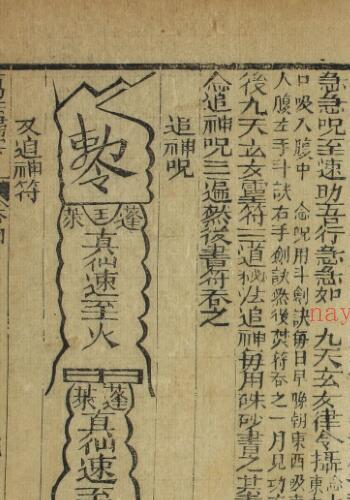 急急呪至速助吾行急急如 九天玄女律令攝
口吸入腹中 念呪用斗劍訣每日早晚朝東西吸
人腹左手斗訣右手劍訣然後焚符吞之一月見功
後九天玄女靈符三道秘法追神每用硃砂書之其
念追神呪三遍然後書符吞之
追神呪
敕令
蓬王萊
真仙速至火
蓬萊
真仙速至
又追神符
nay